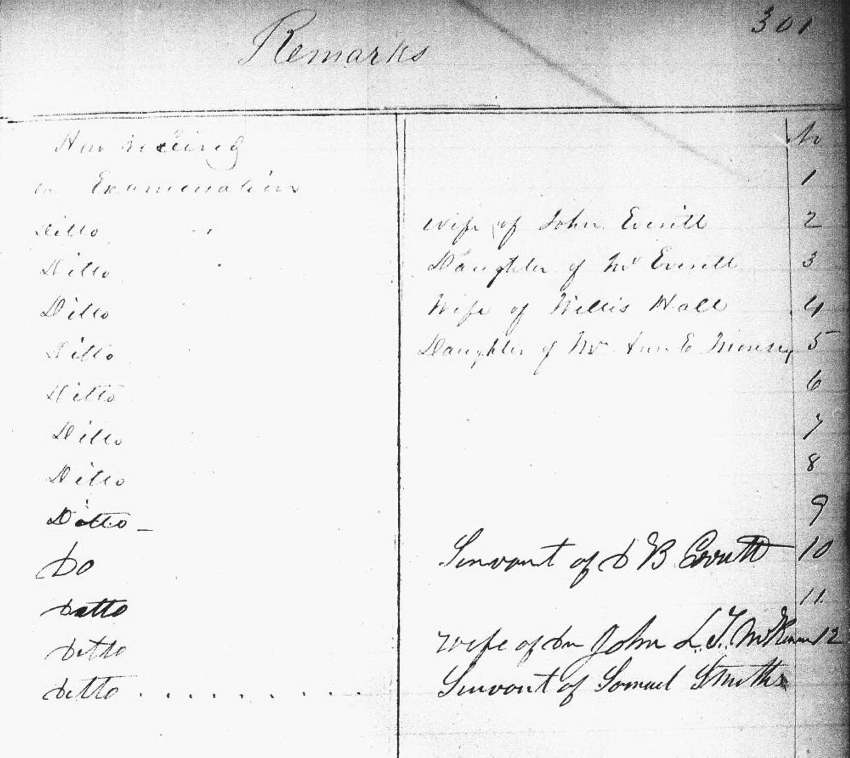 301
Remarks
No
on Examination 1
Ditto Wife of John Everitt 2
Ditto Daughter of Mr Everitt 3
Ditto Wife of Willis Hall 4
Ditto Daughter of Mr Ann E 5
Ditto 6
Ditto 7
Ditto 8
Ditto 9
Do Servant of D B Evritt 10
Ditto 11
Ditto Wife of Dr John L. T. 12
Ditto Servant of Samuel Smiths